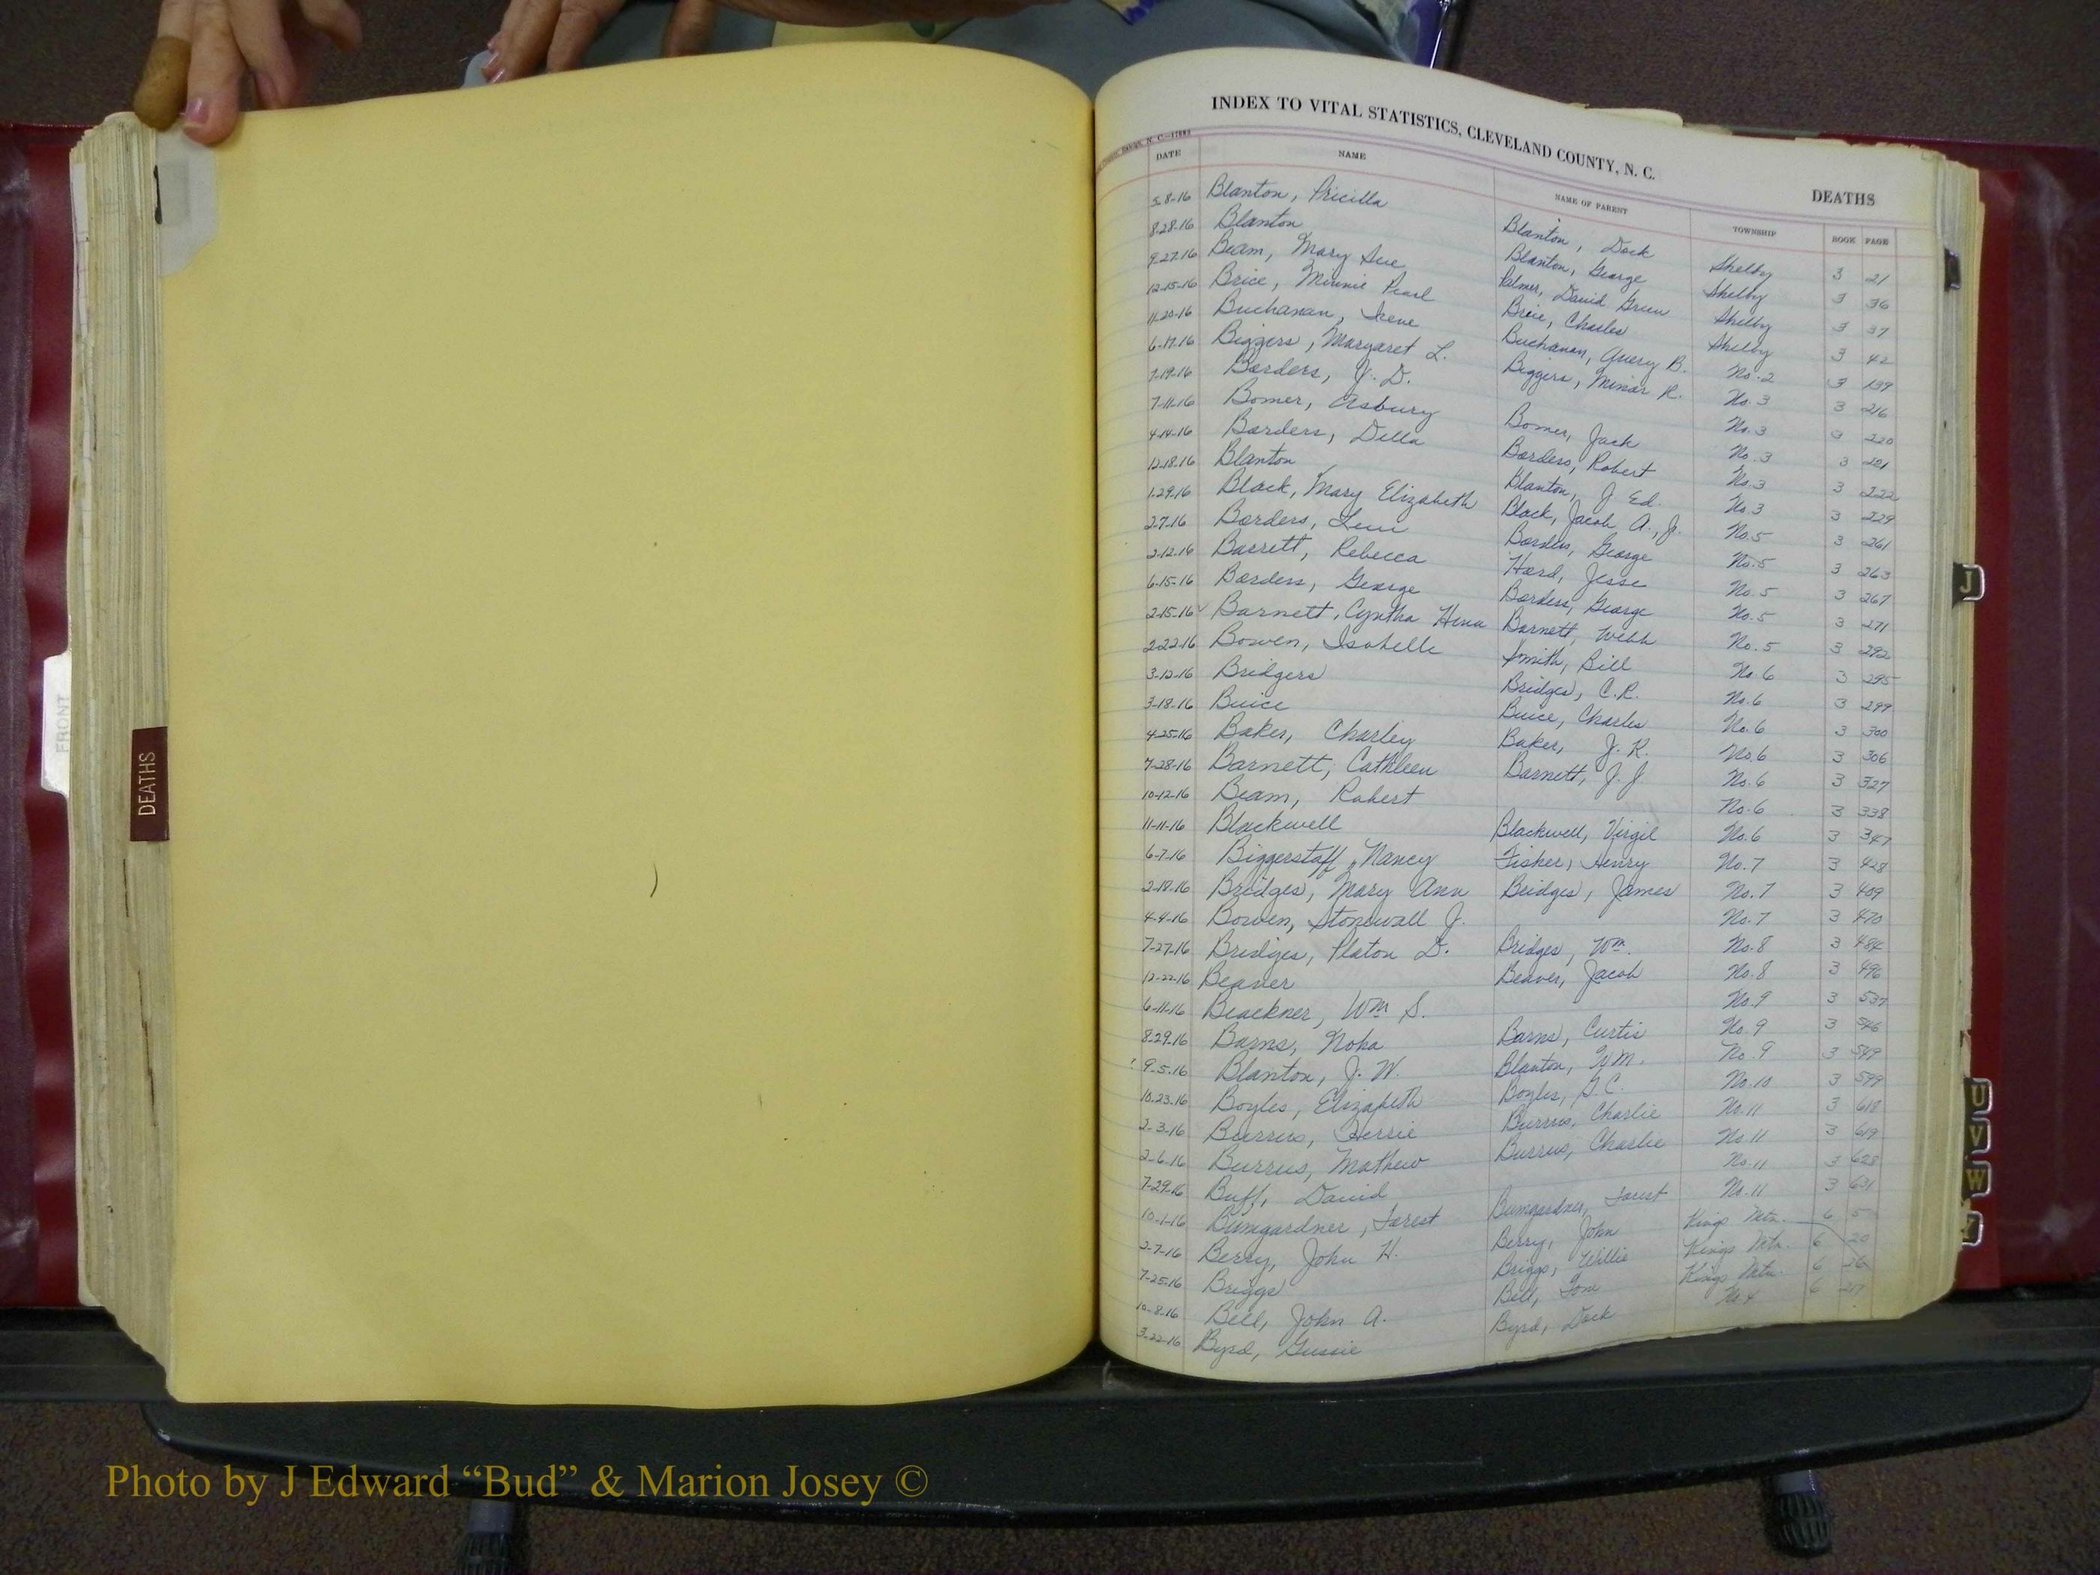 INDEX TO VITAL STATISTICS, CLEVELAND COUNTY, N. C.
DEATHS
DATE NAME NAME OF PARENT TOWNSHIP BOOK PAGE
5-8-16 Blanton, Pricilla Blanton, Dock Shelby 3 21
8-28-16 Blanton Blanton, George Shelby 3 36
9-27-16 Beam, Mary Sue Palmer, David Green Shelby 3 37
12-15-16 Brice, Minnie Pearl Brice, Charles Shelby 3 42
11-20-16 Buchanan, Irene Buchanan, Query B. No. 2 3 139
6-17-16 Biggers, Margaret L. Biggers, Minar R. No. 3 3 216
7-19-16 Borders, J. D. No. 3 3 220
7-11-16 Bomer, Asbury Bomer, Jack No. 3 3
4-14-16 Borders, Della Borders, Robert No. 3 3 222
12-18-16 Blanton Blanton, J Ed. No. 3 3 229
1-29-16 Black, Mary Elizabeth Black, Jacob A., Jr. No. 5 3 261
2-7-16 Borders, Borders, George No. 5 3 263
2-12-16 Barrett, Rebecca Hord, Jesse No. 5 3 267
6-15-16 Borders, George Borders, George No. 5 3 271
2-15-16 Barnett, Cyntha Barnett, Webb No. 5 3 292
2-22-16 Bowen, Isabelle Smith, Bill No. 6 3 295
3-12-16 Bridgers Bridges, C. R. No. 6 3 299
3-18-16 Buice Buice, Charles No. 6 3 300
4-25-16 Baker, Charley Baker, J. R. No. 6 3 306
7-28-16 Barnett, Cathleen Barnett, J. J No. 6 3 327
10-12-16 Beam, Robert No. 6 3 338
11-11-16 Blackwell Blackwell, Virgil No. 6 3 347
6-7-16 Biggerstaff, Nancy Fisher, Henry No. 7 3 428
2-18-16 Bridges, Mary Ann Bridges, James No. 7 3 409
4-9-16 Bowen, Stonewall J. No. 7 3 470
7-27-16 Bridges, Platon D. Bridges, Wm. No. 8 3 484
12-22-16 Beaver Beaver, Jacob No. 8 3 496
6-11-16 Blackner, Wm S. No. 9 3 537
8-29-16 Barns, Noha Barns, Curtis No. 9 3 546
9-5-16 Blanton, J. W. Blanton, No. 9 3 549
10-23-16 Boyles, Elizabeth Boyles, G. C. No. 10 3 599
2-3-16 Burrus, Burrus, Charlie No. 11 3 618
2-6-16 Burrus, Mathew Burrus, Charlie No. 11 3 619
7-29-16 Buff, David No. 11 3 628
10-1-16 Bumgardner, Forest Bumgardner, Forest No. 11 3 631
2-7-16 Berry, John H. Berry, John Kings Mtn. 6 5
7-25-16 Briggs Briggs, Willie Kings Mtn. 6 20
10-8-16 Bell, John A. Bell, Tom Kings Mtn. 6 26
3-22-16 Byrd, Gussie Byrd, Dock No. 4 6 217
DEATHS
FRONT
J
U
V
W
Photo by J Edward “Bud” & Marion Josey ©